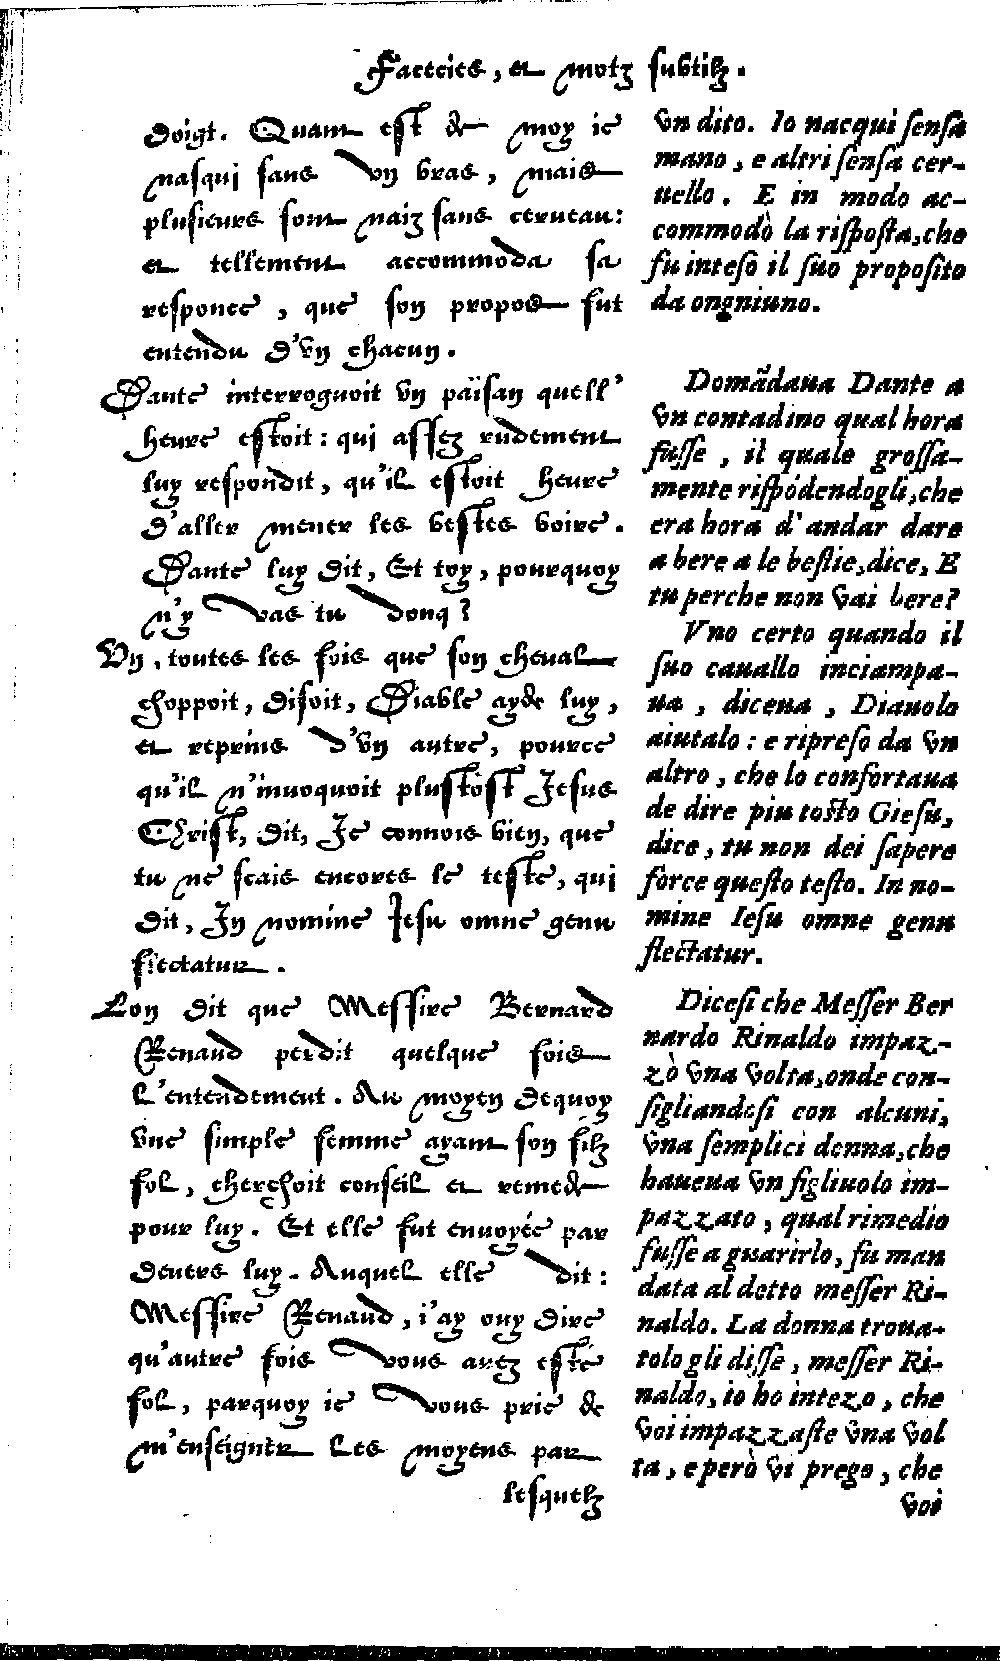 Faceties, et motz subtilz.
doigt. Quant est de moy ie
nasqui sans vn bras, mais
plusieurs sont naiz sans cerueau:
et tellement accommoda sa
responce, que son propos fut
entendu d'vn chacun.
Dante interroguoit vn païsan quell'
heure estoit: qui assez rudement
luy respondit, qu'il estoit heure
d'aller mener les bestes boire.
Dante luy dit, Et toy, pourquoy
n'y vas tu donq?
Vn, toutes les fois que son cheual
choppoit, disoit, Diable ayde luy,
et reprins d'vn autre, pource
qu'il n'inuoquoit plustost Jesus
Christ, dit, Je connois bien, que
tu ne scais encores le texte, qui
dit, Jn nomine Iesu omne genu
flectatur.
Lon dit que Messire Bernard
Renaud perdit quelque fois
l'entendement. Au moyen dequoy
vne simple femme ayant son filz
fol, cherchoit conseil et remede
pour luy. Et elle fut enuoyée par
deuers luy. Auquel elle dit:
Messire Renaud, i'ay ouy dire
qu'autre fois vous auez esté
fol, parquoy ie vous prie de
m'enseigner les moyens par
lesquelz
vn dito. Io nacqui senſa
mano, e altri senſa cer-
uello. E in modo ac-
commodò la riſpoſta, che
fu inteſo il ſuo propoſito
da ongniuno.
Domãdaua Dante a
vn contadino qual hora
fuſſe, il quale groſſa-
mente riſpódendogli, che
era hora d'andar dare
a bere a le beſtie, dice, E
tu perche non vai bere?
Vno certo quando il
ſuo cauallo inciampa-
ua, diceua, Diauolo
aiutalo: e ripreſo da vn
altro, che lo confortaua
de dire piu toſto Gieſu,
dice, tu non dei ſapere
force queſto teſto. In no-
mine Ieſu omne genu
flectatur.
Diceſi che Meſſer Ber
nardo Rinaldo impaz-
zò vna volta, onde con-
ſigliandeſi con alcuni,
vna ſemplici donna, che
haueua vn figliuolo im-
pazzato, qual rimedio
fuſſe a guarirlo, fu man
data al detto meſſer Ri-
naldo. La donna troua-
tolo gli diſſe, meſſer Ri-
naldo, io ho intezo, che
voi impazzaſte vna vol
ta, e però vi prego, che
voi